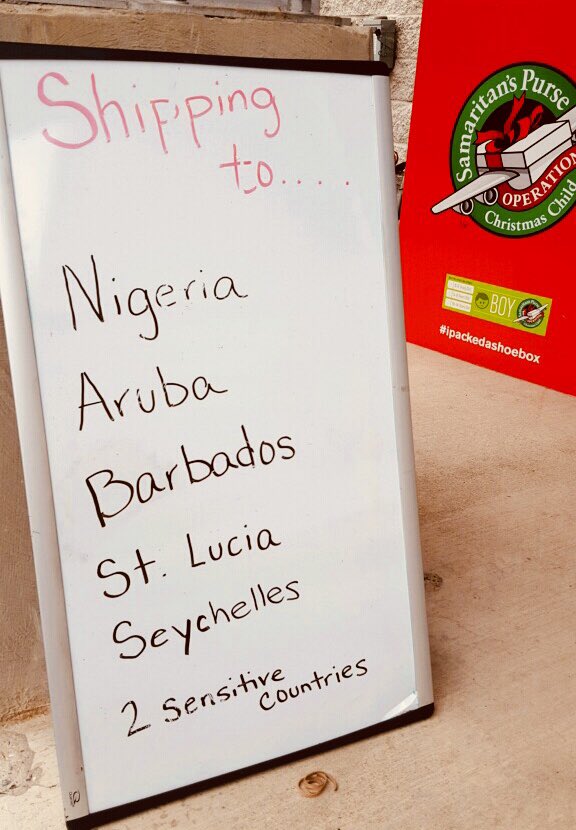 Shipping
to.....
Nigeria
Aruba
Barbados
St. Lucia
Seychelles
2 Sensitive
Countries
Samaritan's Purse
OPERATION
Christmas Child
BOY
#ipackedashoebox